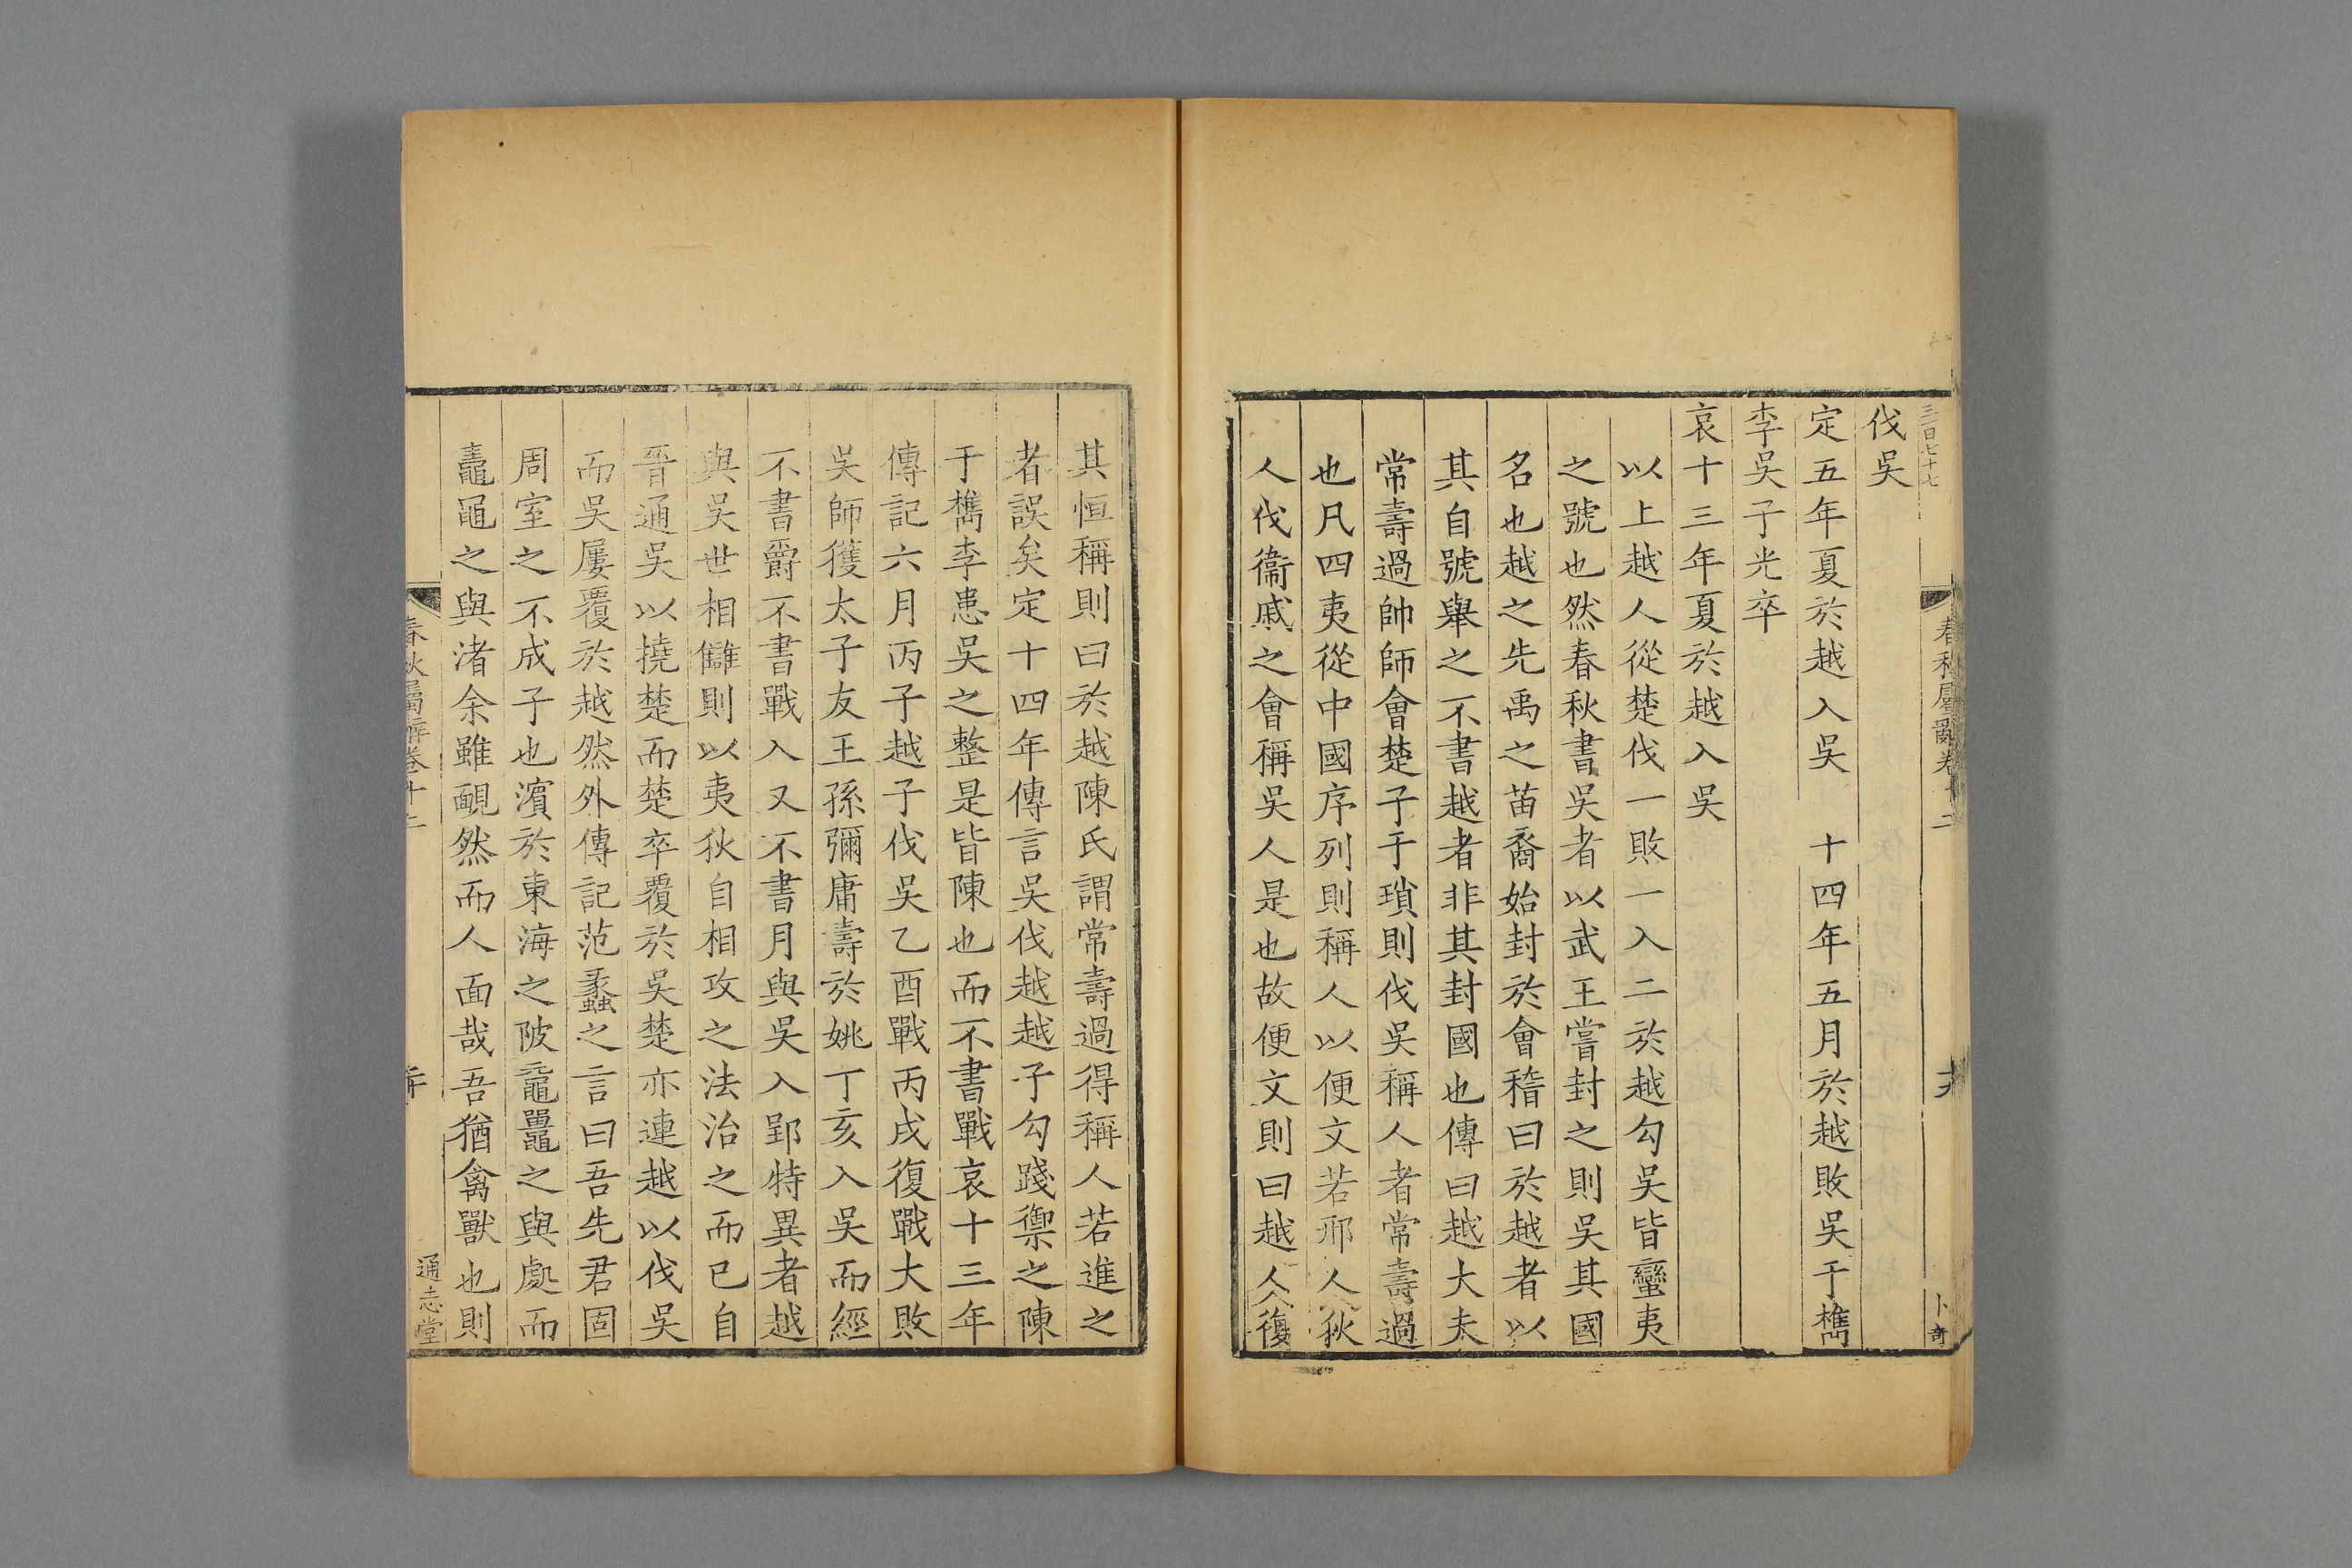 三百七十七
春秋屬辭卷十二
卜奇
伐吳
定五年夏於越入吳　十四年五月於越敗吳于檇
李吳子光卒
哀十三年夏於越入吳
以上越人從楚伐一敗一入二於越勾吳皆蠻夷
之號也然春秋書吳者以武王嘗封之則吳其國
名也越之先禹之苗裔始封於會稽曰於越者以
其自號舉之不書越者非其封國也傳曰越大夫
常壽過帥師會楚子于瑣則伐吳稱人者常壽過
也凡四夷從中國序列則稱人以便文若邢人狄
人伐衞戚之會稱吳人是也故便文則曰越人復
其恒稱則曰於越陳氏謂常壽過得稱人若進之
者誤矣定十四年傳言吳伐越越子勾踐禦之陳
于檇李患吳之整是皆陳也而不書戰哀十三年
傳記六月丙子越子伐吳乙酉戰丙戌復戰大敗
吳師獲太子友王孫彌庸壽於姚丁亥入吳而經
不書爵不書戰入又不書月與吳入郢特異者越
與吳世相讎則以夷狄自相攻之法治之而已自
晉通吳以撓楚而楚卒覆於吳楚亦連越以伐吳
而吳屢覆於越然外傳記范蠡之言曰吾先君固
周室之不成子也濵於東海之陂黿鼉之與處而
鼃黽之與渚余雖靦然而人面哉吾猶禽獸也則
春秋屬辭卷十二
通志堂